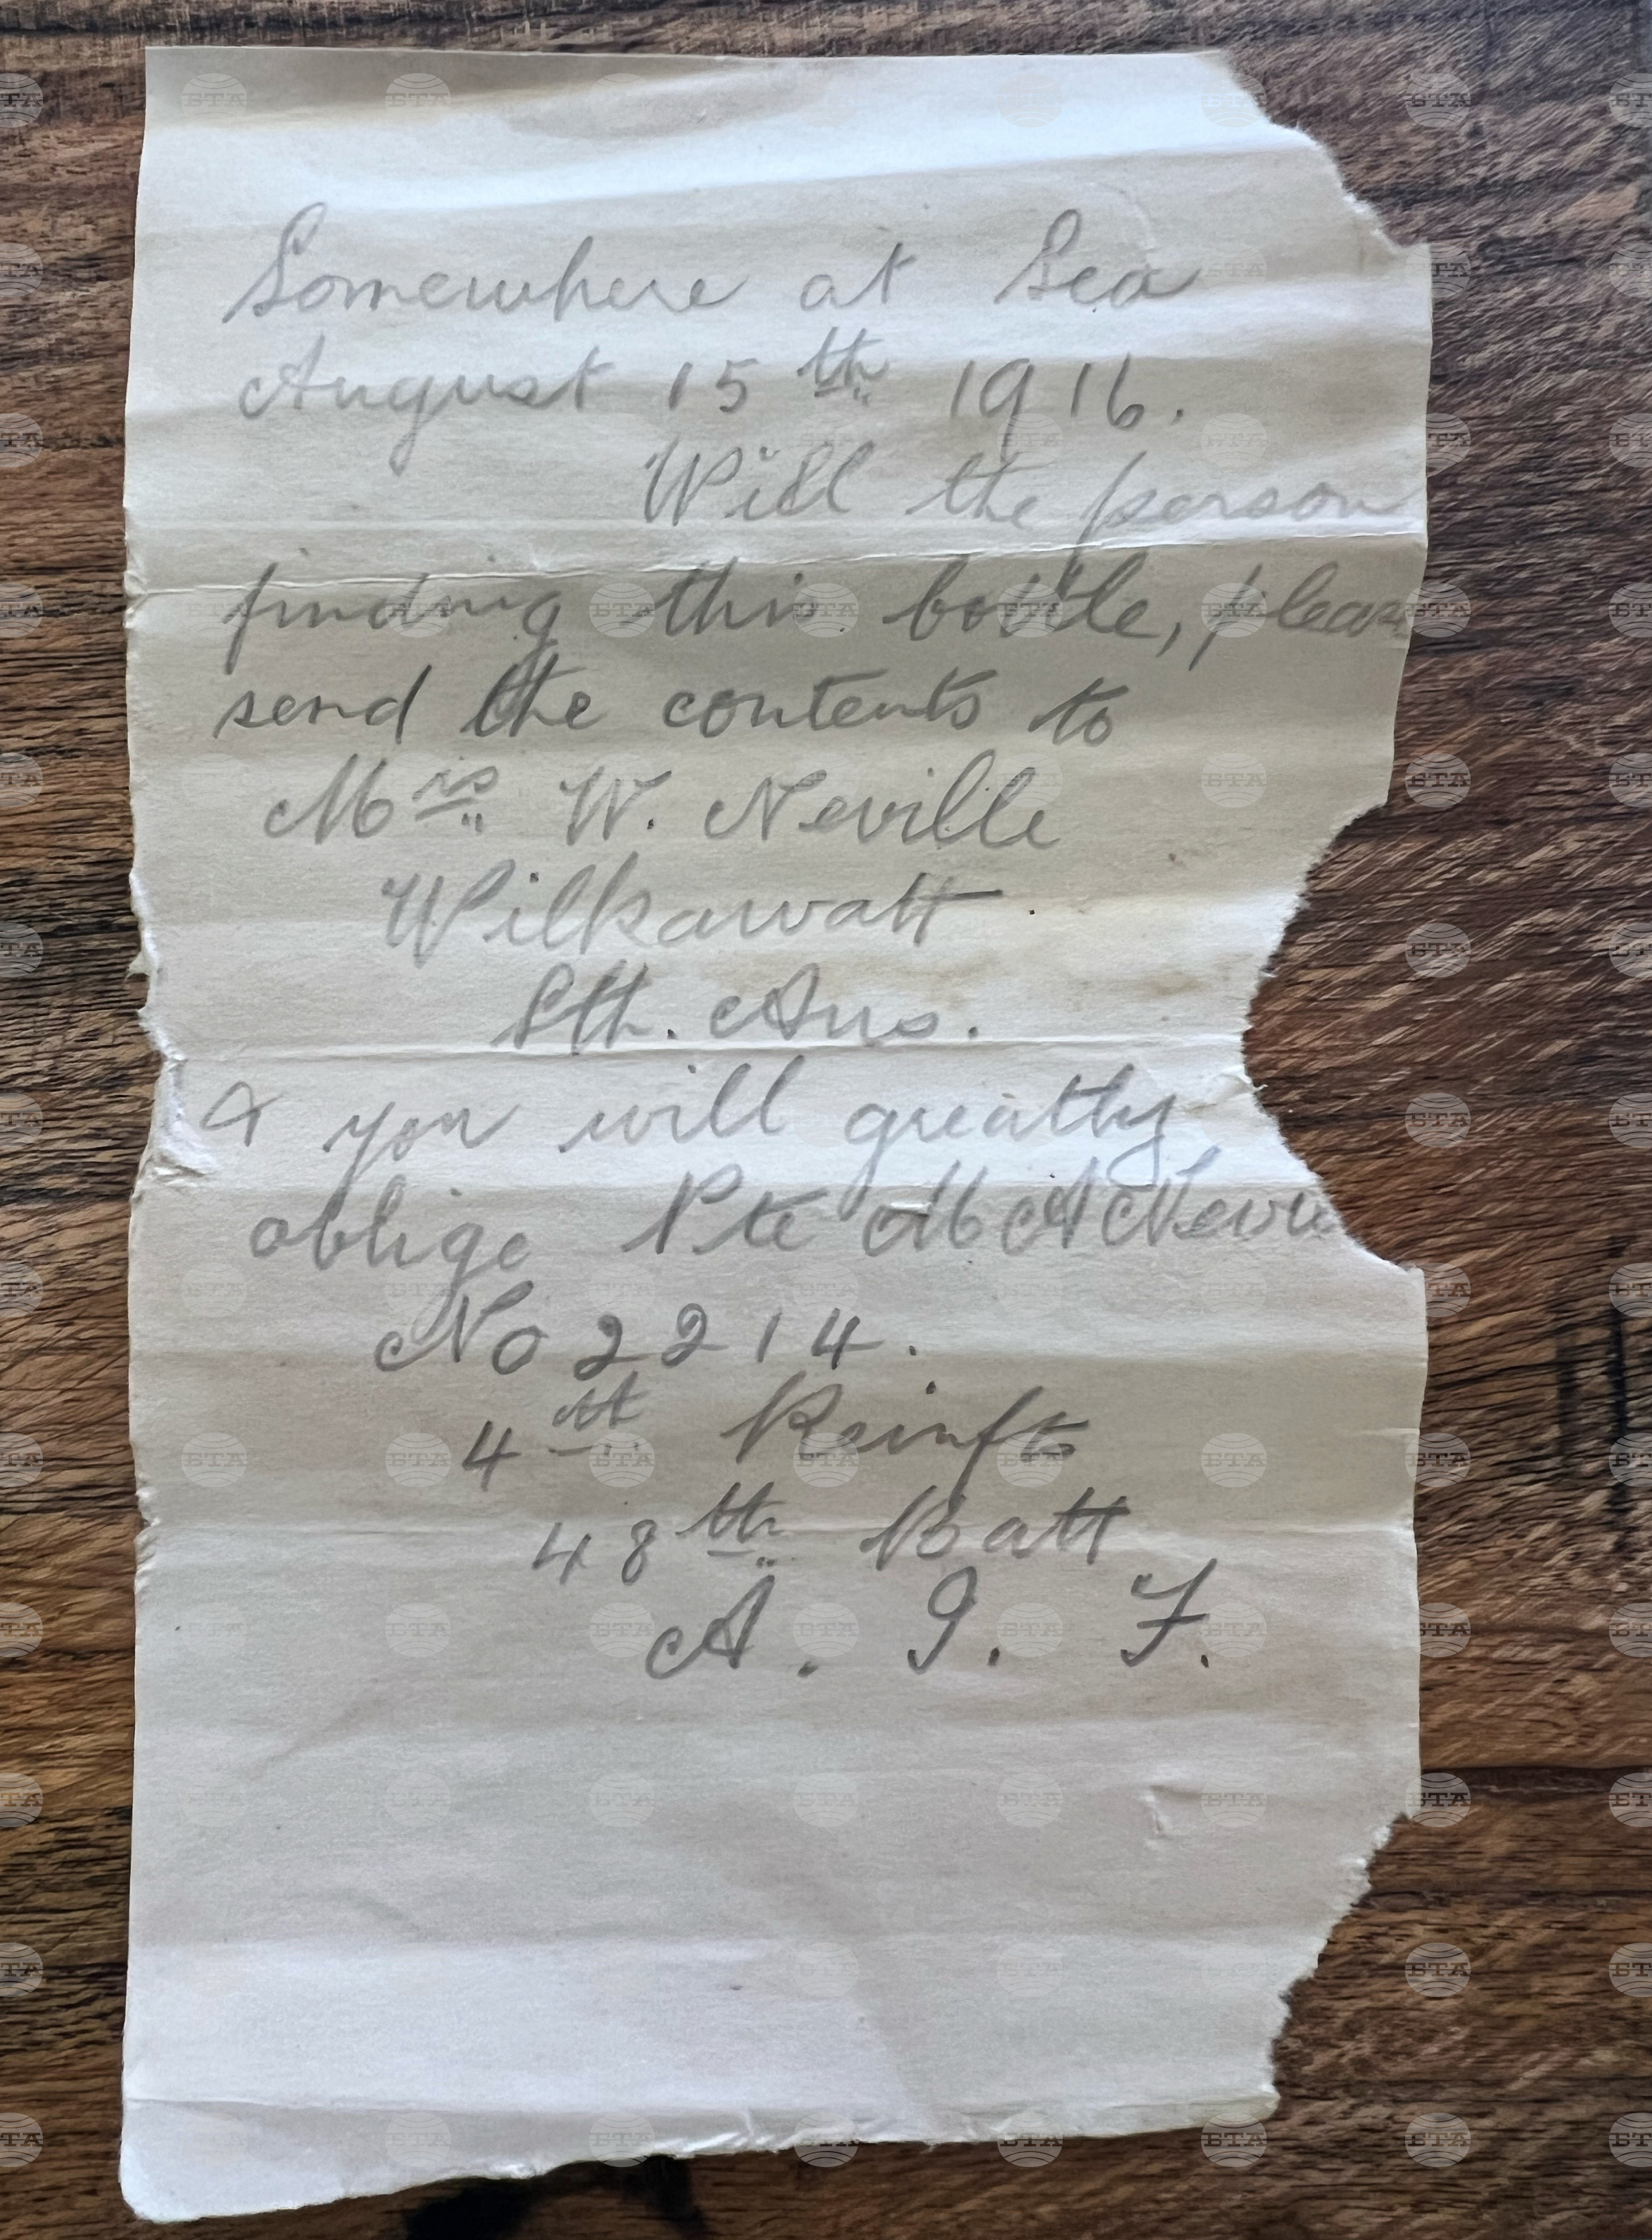 Somewhere at Sea
August 15th 1916.
Will the person
finding this bottle, pleas
send the contents to
Mrs W. Neville
Wilkawatt
Sth. Aus.
& you will greatly
oblige Pte M A Nevi
No 2214.
4th Reinfts
48th Batt
A. I. F.
БТА